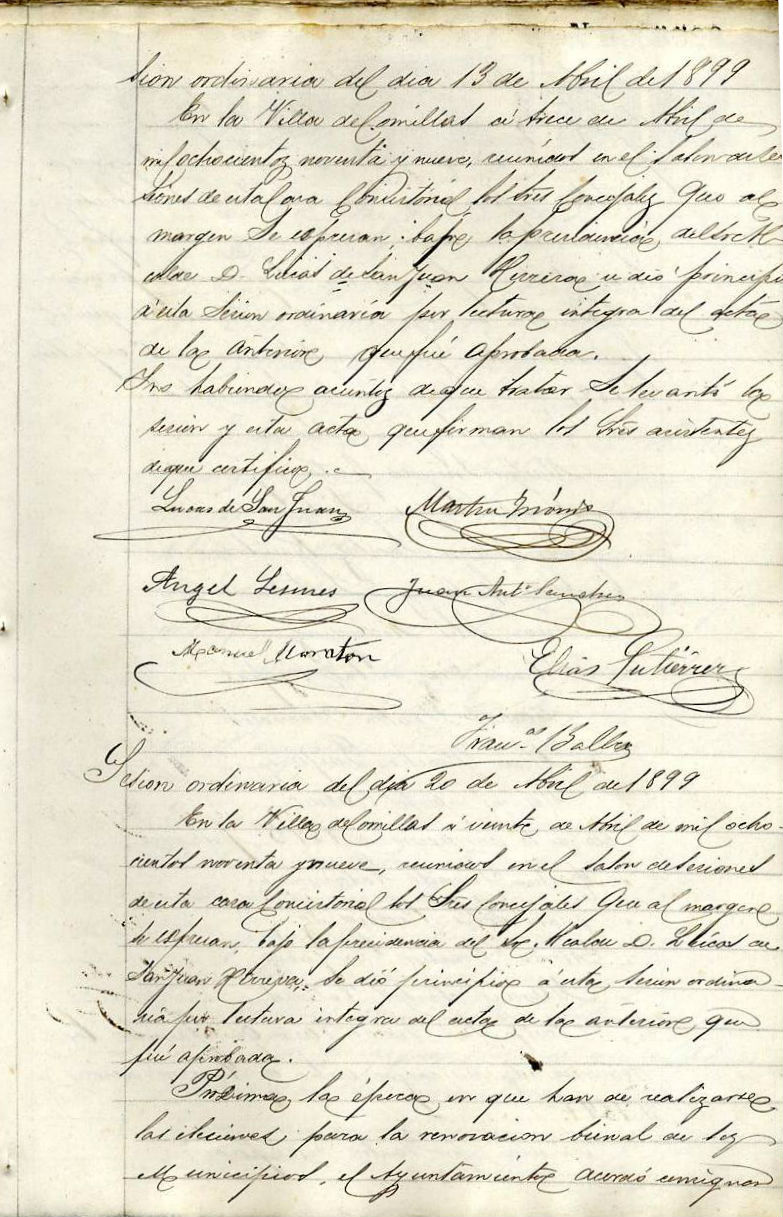 Sion ordinaria del dia 13 de Abril de 1899
En la Villa de Comillas á trece de Abril de
mil ochocientos noventa y nueve, reunidos en el Salon de Se
siones de esta Casa Consistorial los Sres Concejales que al
margen Se espresan; bajo la presidencia del Sr Al
calde D. Lucas de San Juan Herrera se dió principio
á esta Sesion ordinaria por lectura integra del acta
de la anterior que fué aprobada.
Y no habiendo asuntos de que tratar Se levantó la
sesion y esta acta que firman los Sres asistentes
de que certifico.
Lucas de San Juan
Angel Lesmes Juan Antº Sanchez
Manuel Moraton Elias Gutiérrez
Franco Balbas
Sesion ordinaria del dia 20 de Abril de 1899
En la Villa de Comillas á veinte de Abril de mil ocho-
cientos noventa y nueve, reunidos en el Salon de sesiones
de esta casa Consistorial los Sres Concejales que al margen
se espresan, bajo la presidencia del Sr. Alcalde D. Lucas de
San Juan Herrera, Se dió principio á esta sesion ordina-
ria por lectura integra del acta de la anterior que
fué aprobada.
Próxima la época en que han de realizarse
las elecciones para la renovacion bienal de los
Municipios, el Ayuntamiento acordó consignar